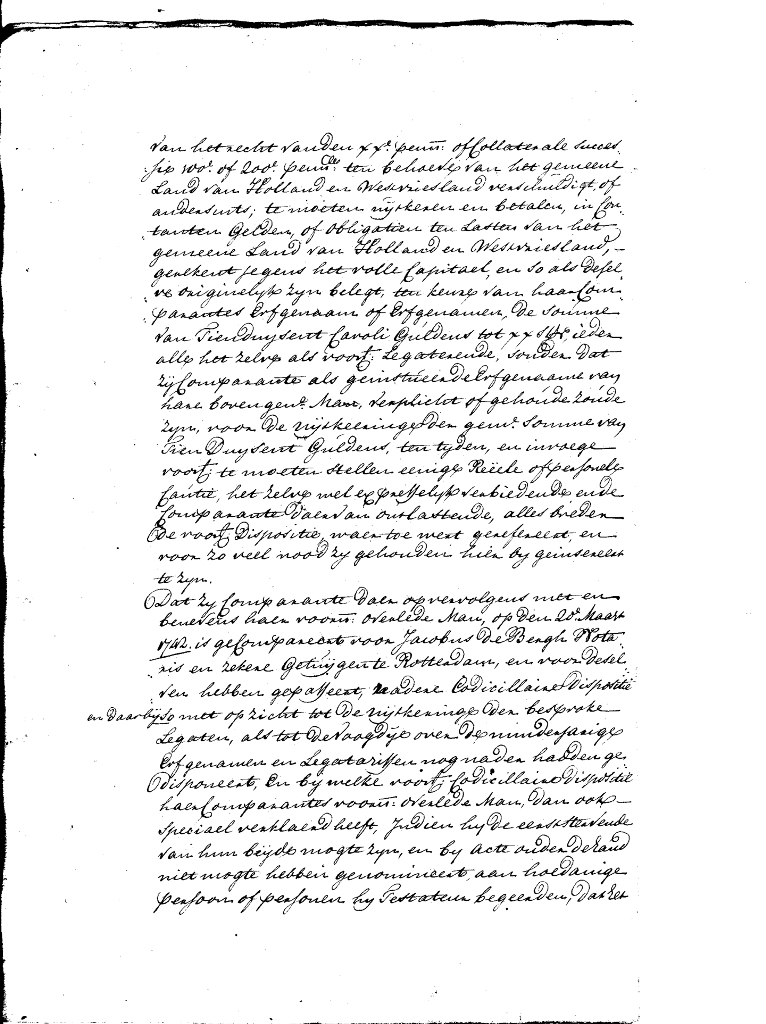 van het recht van den xxe. penn: of Collaterale succes
sie 100e. of 200e. penn: ten behoeve van het gemeene
Land van Holland en Westvriesland verschuldigt, of
andersints, te moeten uijtkeren en betalen, in Con
tanten Gelden, of obligatien ten Lasten van het
gemeene Land van Holland en Westvriesland,
gerekent jegens het volle Capitael, en so als desel
ve originelijk zijn belegt, ten keure van haar Com
parantes Erfgenaam of Erfgenamen, de Somme
van Tienduysent Caroli Guldens tot xx st: ieder
alle het zelve als voort: Legaterende, sonder dat
zij Comparante als geinstitueerde Erfgenaame van
hare bovengen: Man, verplicht of gehoude zoude
zyn, voor de uijtkeeringe der gem: Somme van
Tien Duysent Guldens, ten tyden, en invoege
voort: te moeten stellen eenige Reëele of personele
Cautie, het zelve wel expresselyk verbiedende ende
Comparante daervan ontlastende, alles breder
de voort: Dispositie, waer toe wert gerefereert, en
voor zo veel nood zy gehouden hier by geinsereert
te zyn.
Dat zy Comparante daer op vervolgens met en
benevens haer voorn: overlede Man, op den 20e. Maart
1742. is gecompareert voor Jacobus de Bergh Nota
ris en zekere Getuijgen te Rotterdam, en voor desel
ven hebben gepasseert, nadere Codicillaire Dispositie
en daarbij so met opzicht tot de uijtkeringe der besproke
Legaten, als tot de voogdije over de minderjarige
Erfgenamen en Legatarissen nog nader hadden ge
disponeert, En by welke voort: Codicillaire Dispositie
haer Comparantes voorn: overlede Man, dan ook
speciael verklaerd heeft, Indien hy de eerst stervende
van hun beijde mogte zyn, en by acte onder de hand
niet mogte hebben genomineert, aan hoedanige
persoon of personen hy Testateur begeerden, dat het